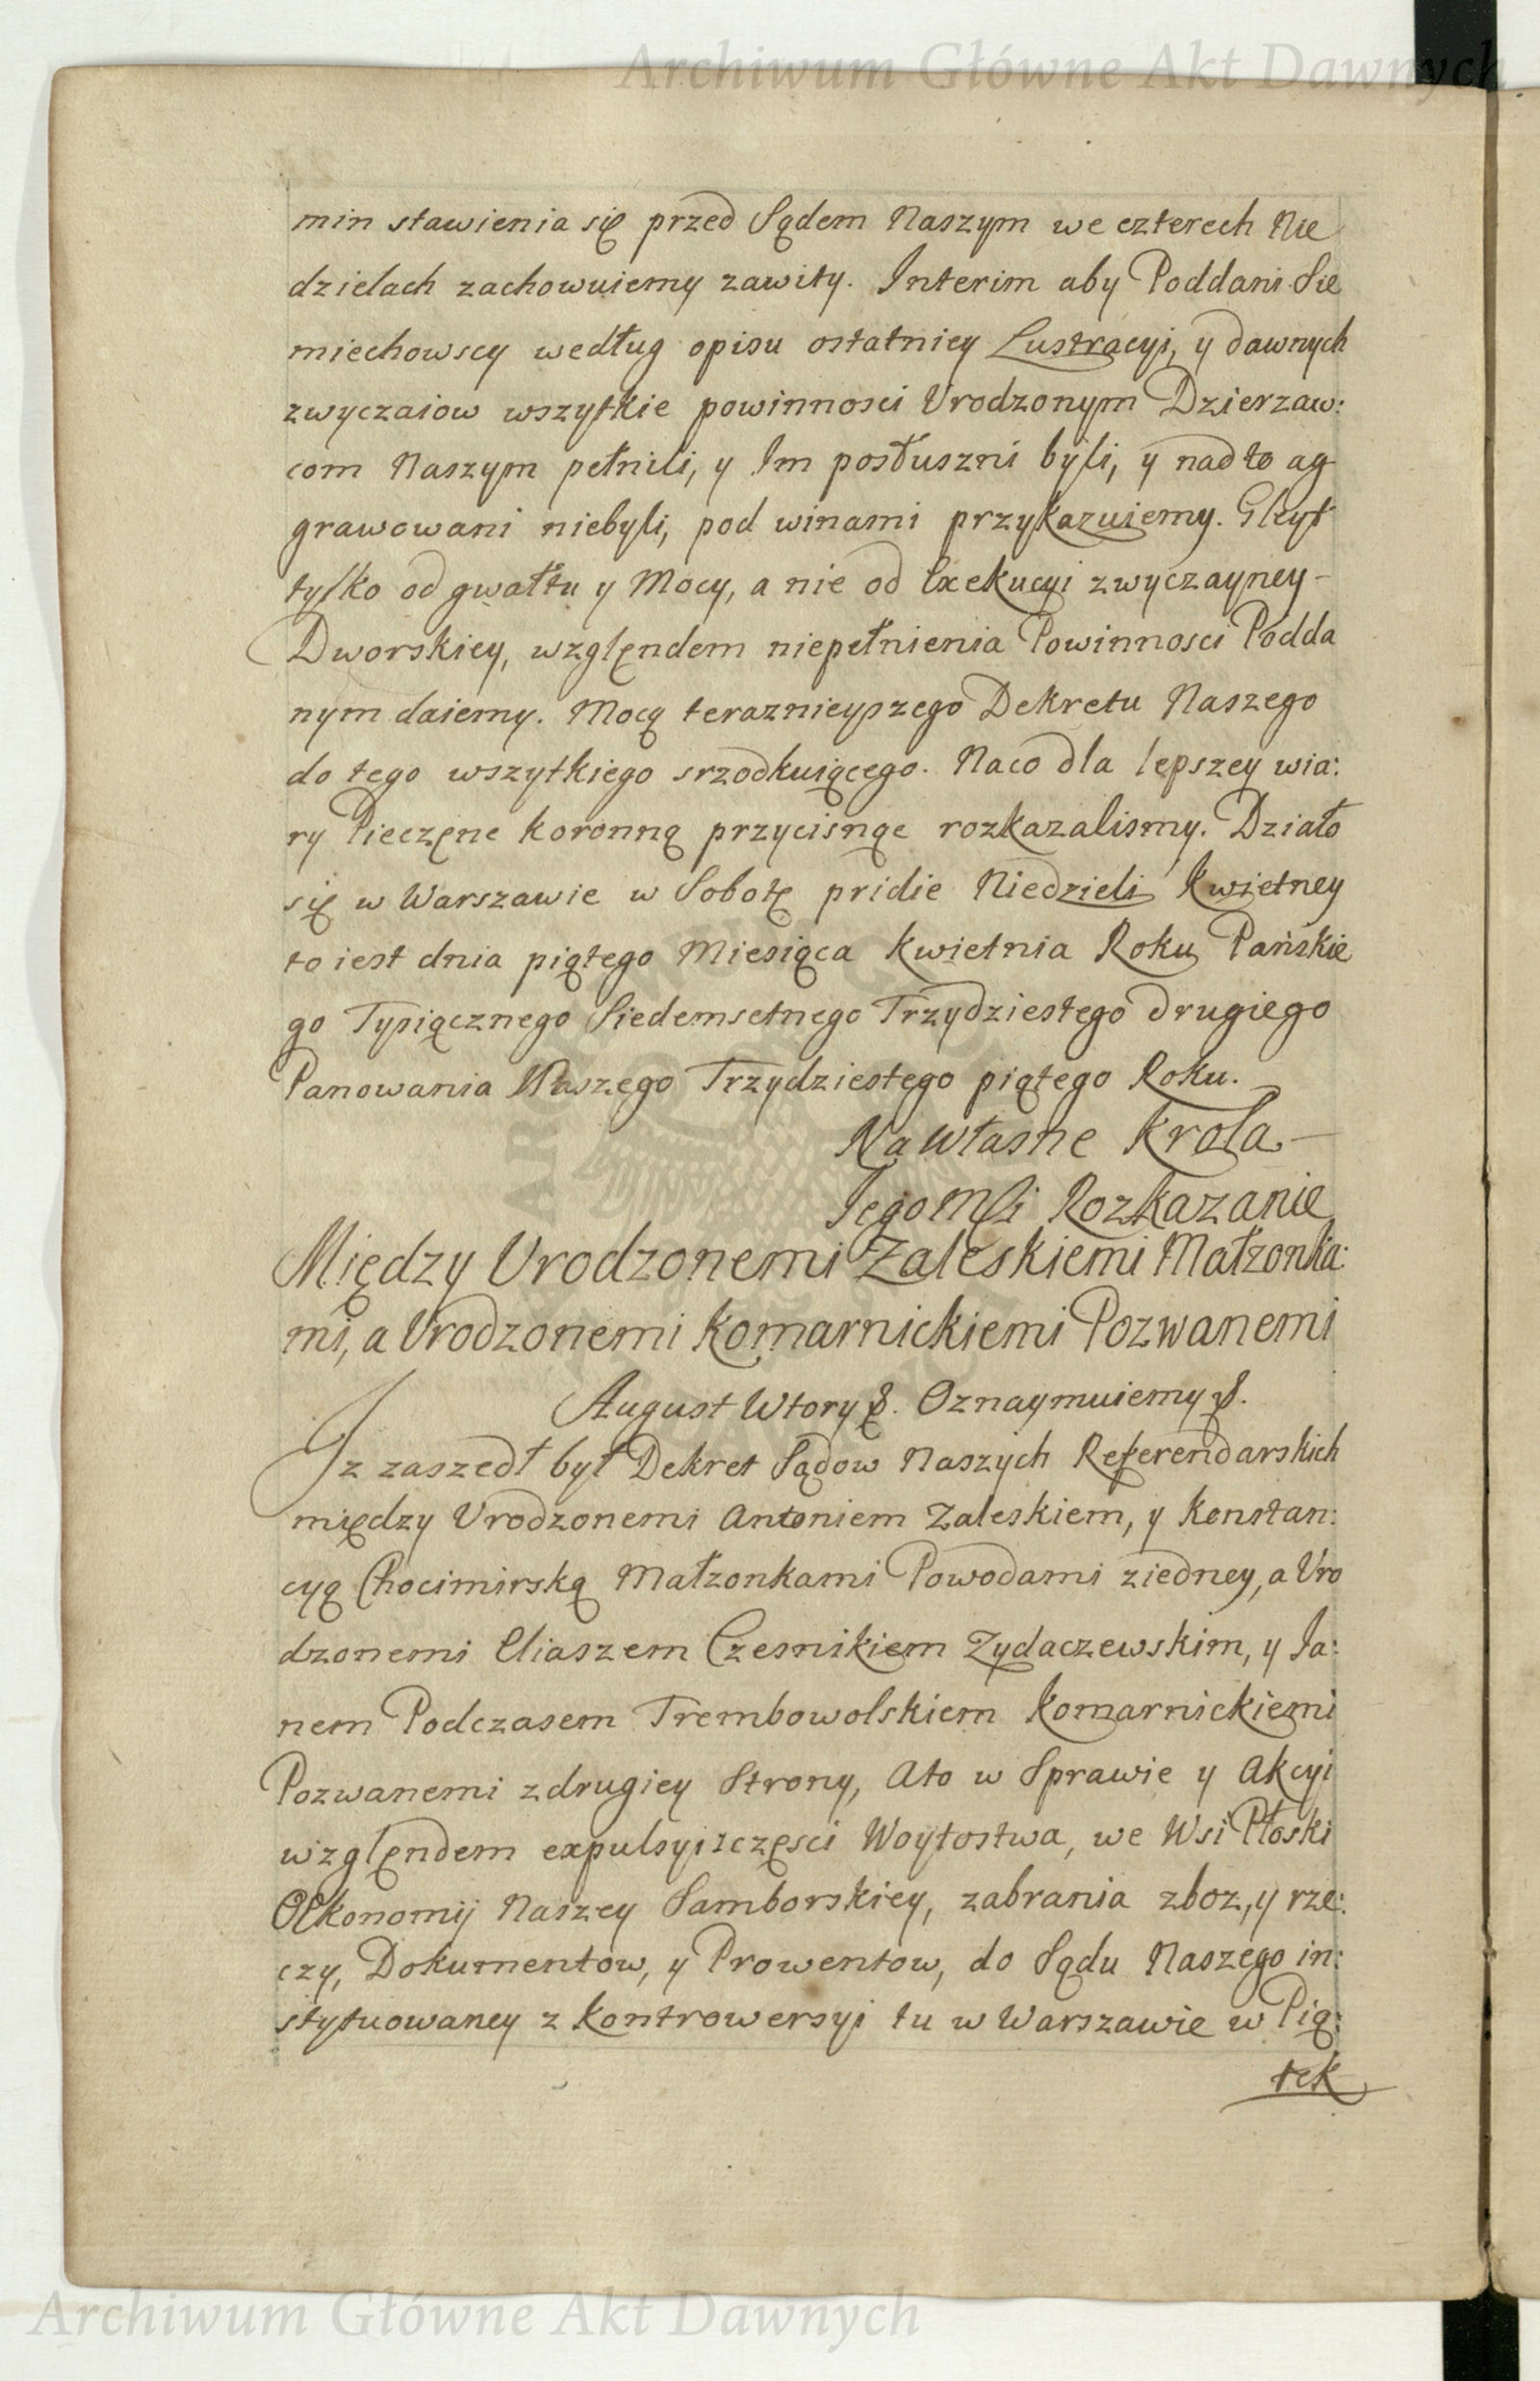 Archiwum Główne Akt Dawnych
min stawienia się przed Sądem Naszym we czterech Nie
dzielach zachowuiemy zawity. Interim aby Poddani Sie
miechowscy według opisu ostatniey Lustracyi, y dawnych
zwyczaiow wszytkie powinnosci Urodzonym Dzierzaw:
com Naszym pełnili, y Im posłuszni byli, y nad to ag
grawowani niebyli, pod winami przykazuiemy. Gleyt
tylko od gwałtu y Mocy, a nie od Exekucyi zwyczayney –
Dworskiey, względem niepełnienia Powinnosci Podda
nym daiemy. Mocą teraznieyszego Dekretu Naszego
do tego wszytkiego srzodkuiącego. Naco dla lepszey wia:
ry Pieczęnc koronną przycisnąc rozkazalismy. Działo
się w Warszawie w Sobotę pridie Niedzieli Kwietney
to iest dnia piątego Miesiąca Kwietnia Roku Pańskie
go Tysiącznego Siedemsetnego Trzydziestego drugiego
Panowania Naszego Trzydziestego piątego Roku.
Na Własne Krola –
Jego Msci Rozkazanie
Między Urodzonemi Zaleskiemi Małzonka:
mi, a Urodzonemi Komarnickiemi Pozwanemi
August Wtory &. Oznaymuiemy &.
Iz zaszedł był Dekret Sądow Naszych Referendarskich
między Urodzonemi Antoniem Zaleskiem, y Konstan:
cyą Chocimirską Małzonkami Powodami ziedney, a Uro
dzonemi Eliaszem Czesnikiem Zydaczewskim, y Ja:
nem Podczasem Trembowolskiem Komarnickiemi
Pozwanemi zdrugiey Strony, Ato w Sprawie y Akcyi
wzglęndem expulsyi zczęsci Woytostwa, we Wsi Płoski
Oekonomij Naszey Samborskiey, zabrania zboz, y rze:
czy, Dokumentow, y Prowentow, do Sądu Naszego in:
stytuowaney z Kontrowersyi tu w Warszawie w Pią:
tek
Archiwum Główne Akt Dawnych